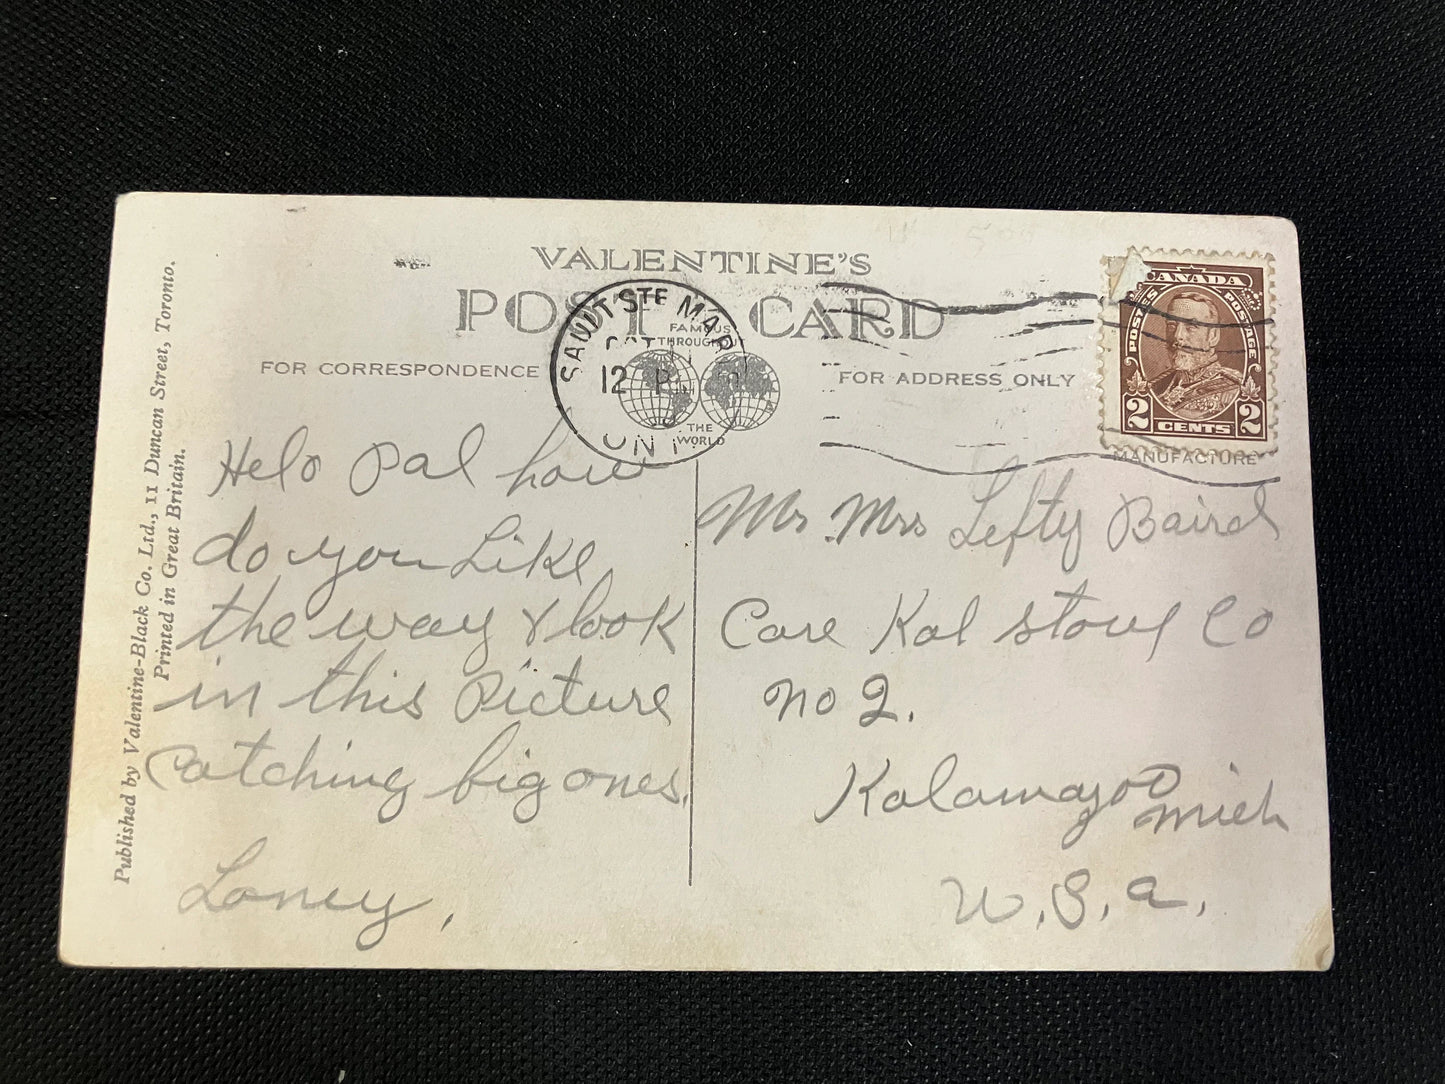 VALENTINE'S
POST CARD
FAMOUS
THROUGHOUT
THE
WORLD
FOR CORRESPONDENCE
FOR ADDRESS ONLY
SAULT STE MAR
OCT
12 P
ONT
CANADA
POSTES POSTAGE
2 CENTS 2
MANUFACTURE
Helo Pal how
do you Like
the way I look
in this Picture
Catching big ones.
Loney.
Mr Mrs Lefty Baird
Care Kal Stove Co
No 2.
Kalamazoo
Mich
U.S.A.
Published by Valentine-Black Co. Ltd., 11 Duncan Street, Toronto.
Printed in Great Britain.